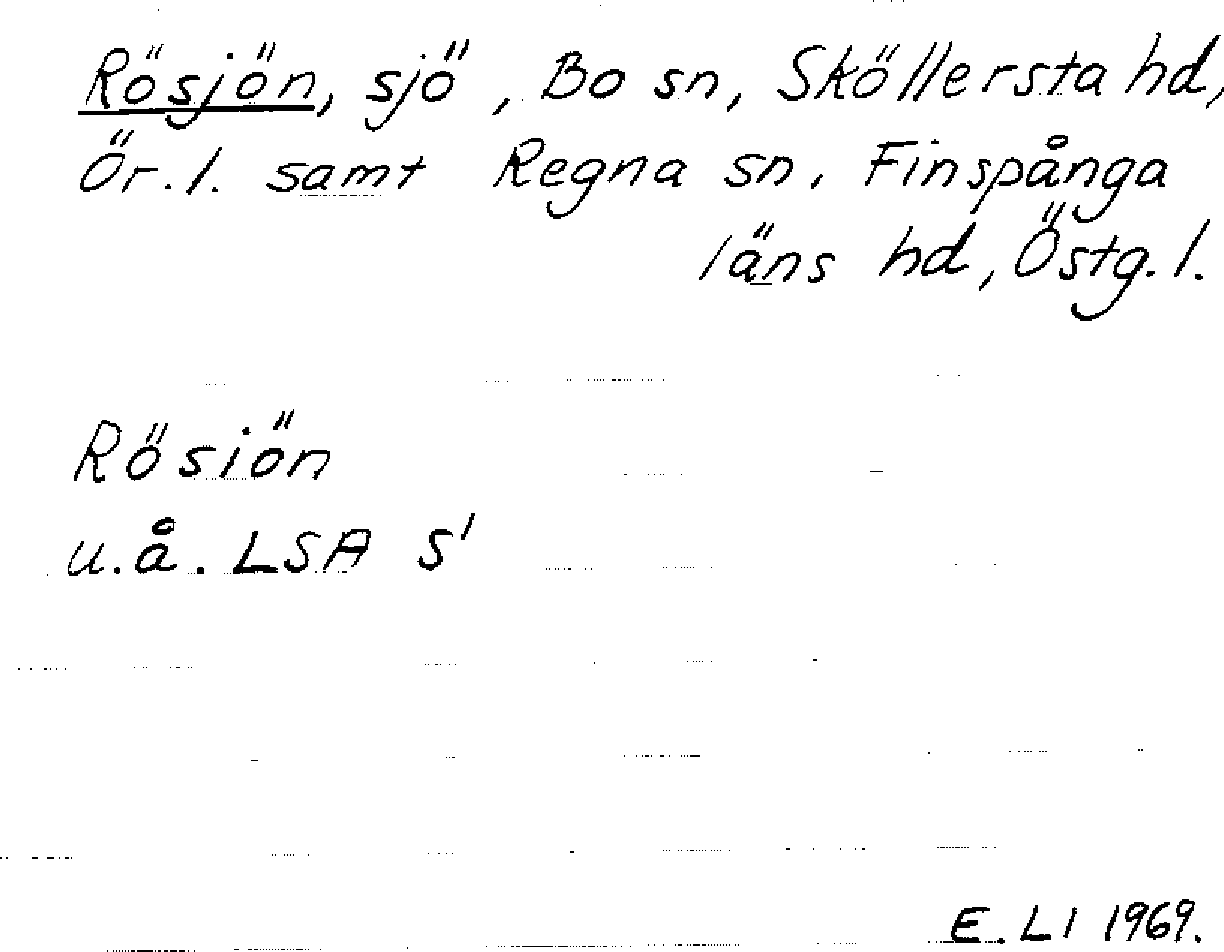 Rösjön, sjö, Bo sn, Sköllersta hd,
Ör. l. samt Regna sn, Finspånga
läns hd, Östg. l.
Rösiön
u.å. LSA S1
E. LI 1969.